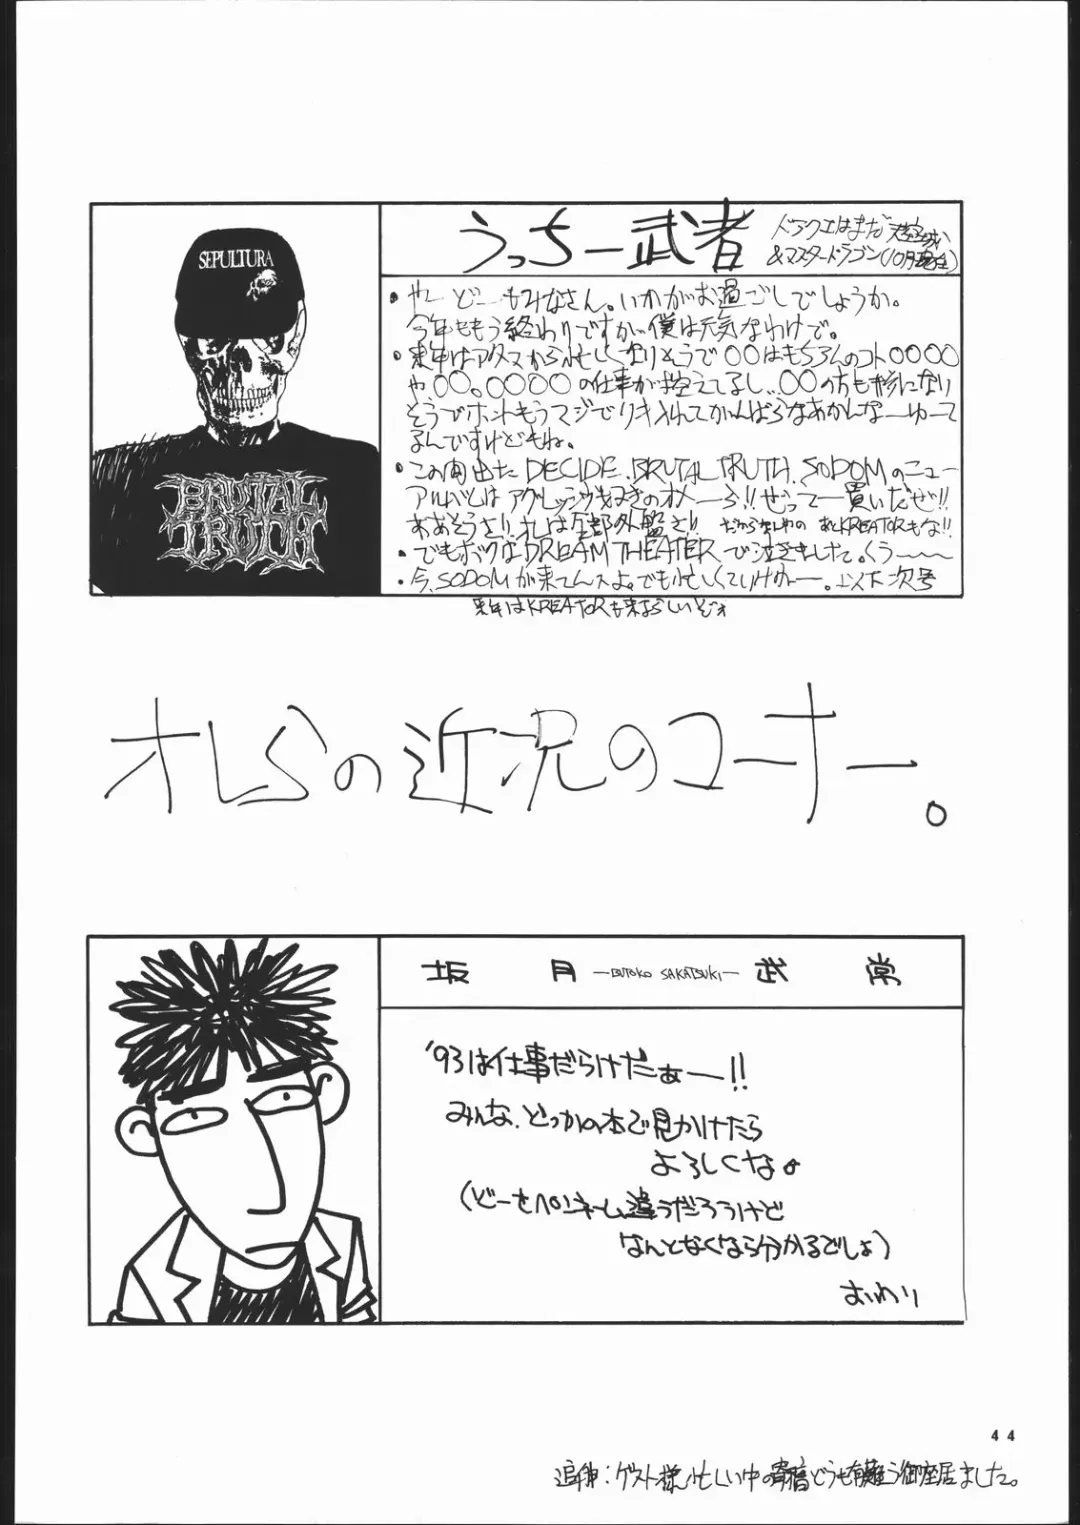 SEPULTURA
BRUTAL
TRUTH
うっちー武者
ドラクエはまだ天空城
&マスタードラゴン(10月現在)
・やーどーもみなさん。いかがお過ごしでしょうか。
今年ももう終わりですが僕は元気なわけで。
・来年はアタマから忙しくなりそうで〇〇はもちろんのコト〇〇〇〇
や〇〇。〇〇〇〇の仕事が控えてるし、〇〇の方も形になり
そうでホントもうマジでリキ入れてがんばらなあかんなーゆーて
るんですけどもね。
・この間出た DECIDE. BRUTAL TRUTH. SODOMのニュー
アルバムはアグレッシヴ好きのオメーら!!ぜってー買いだぜ!!
ああそうさ!!オレは全部外盤さ!! あとKREATORもな!!
・でもボクはDREAM THEATERで泣きました。くぅ〜〜
・今、SODOMが来てんスよ。でも忙しくていけねー。以下次号
来年はKREATORも来るらしいぞォ
オレらの近況のコーナー。
坂月 —BUTOKO SAKATSUKI—武常
'93は仕事だらけだぁー!!
みんな、どっかの本で見かけたら
よろしくな。
(どーせペンネーム違うだろうけど
なんとなくなら分かるでしょ)
おわり
44
追伸:ゲスト様、忙しい中の寄稿どうも有難う御座居ました。